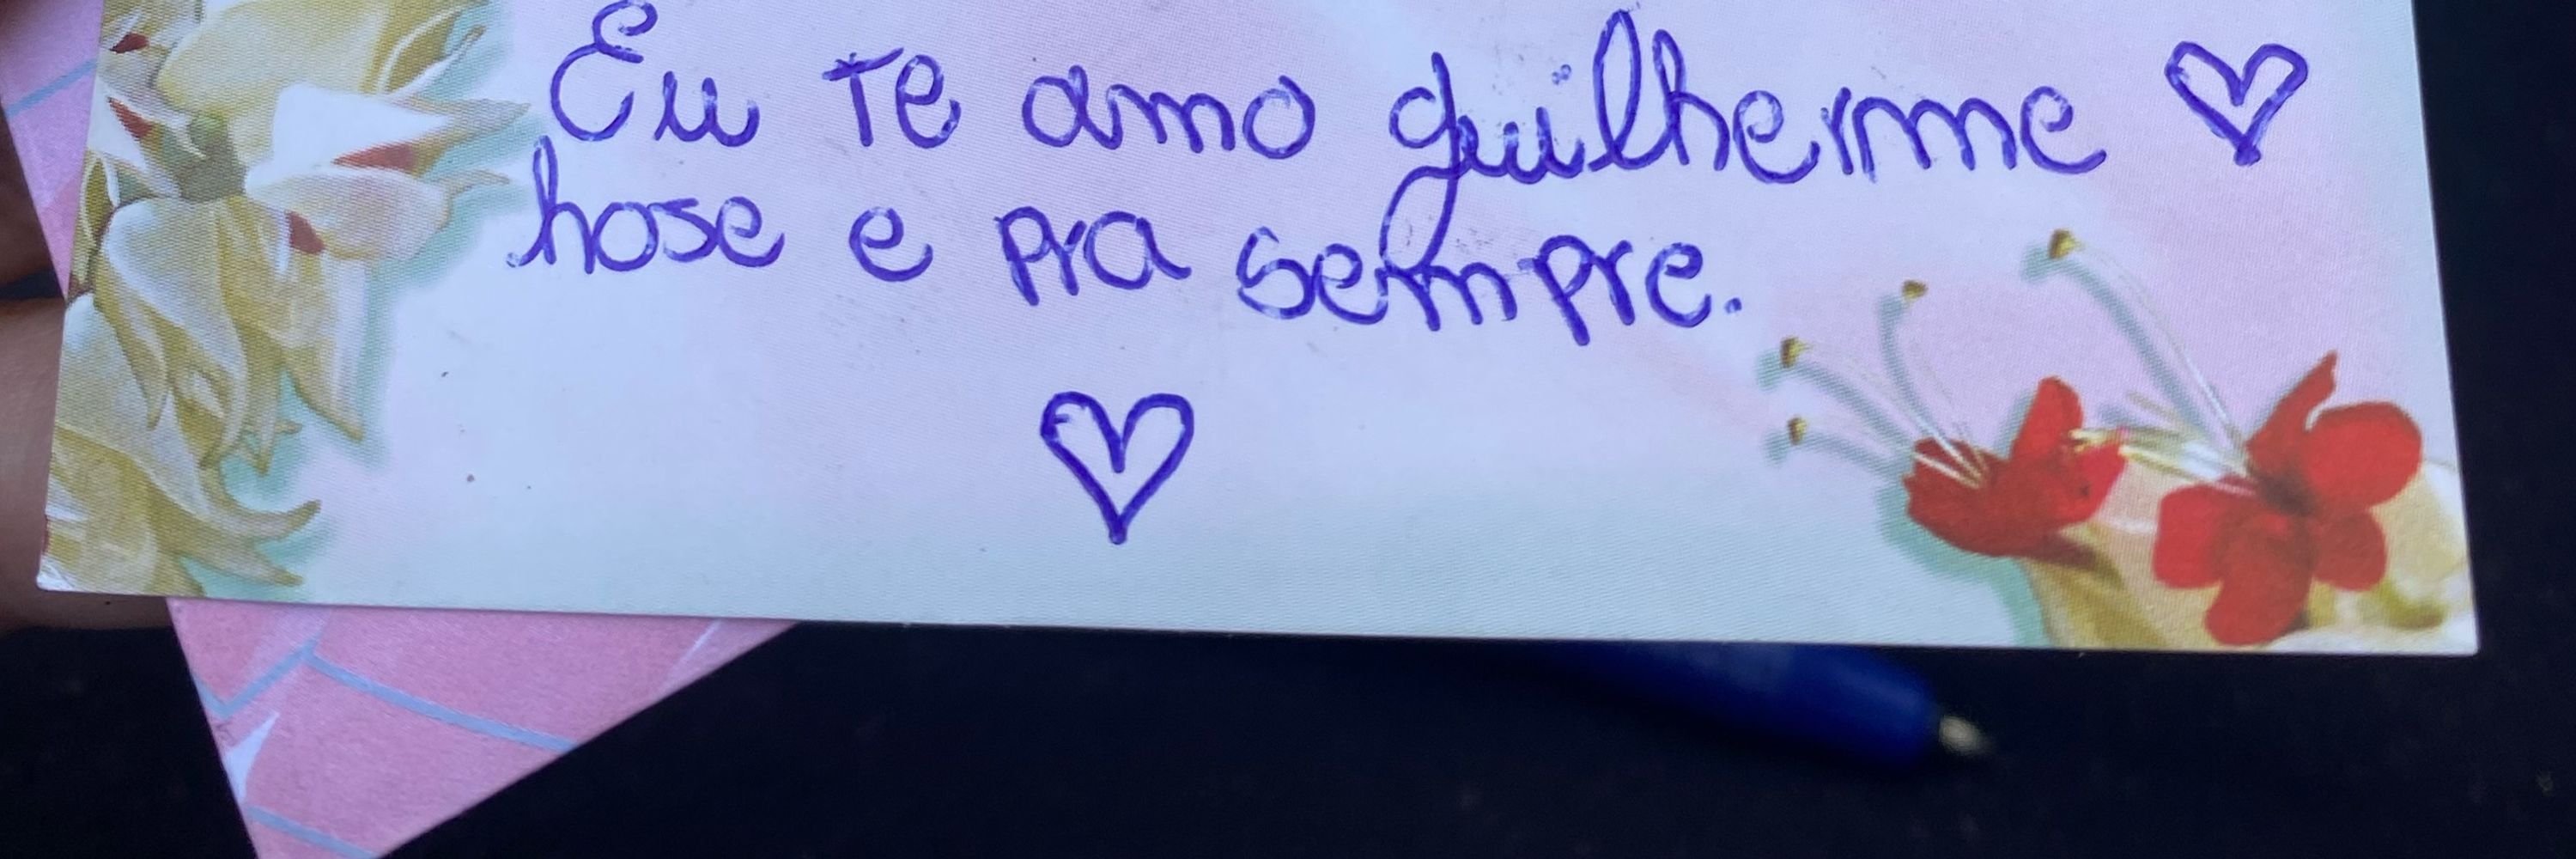 Eu te amo guilherme ♡
hose e pra sempre.
♡